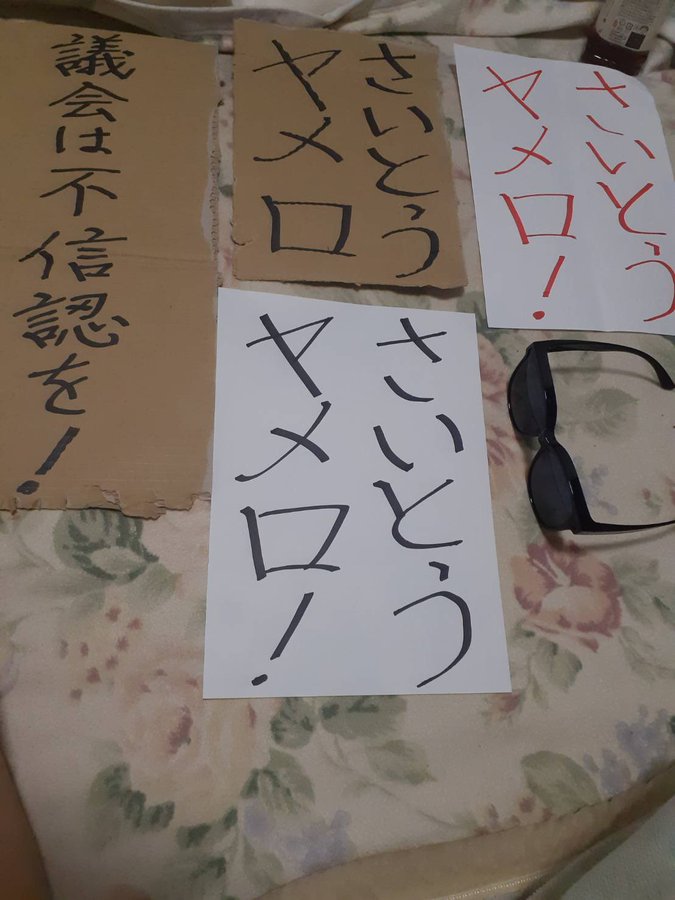 議会は不信認を!
さいとう
ヤメロ
さいとう
ヤメロ!
さいとう
ヤメロ!